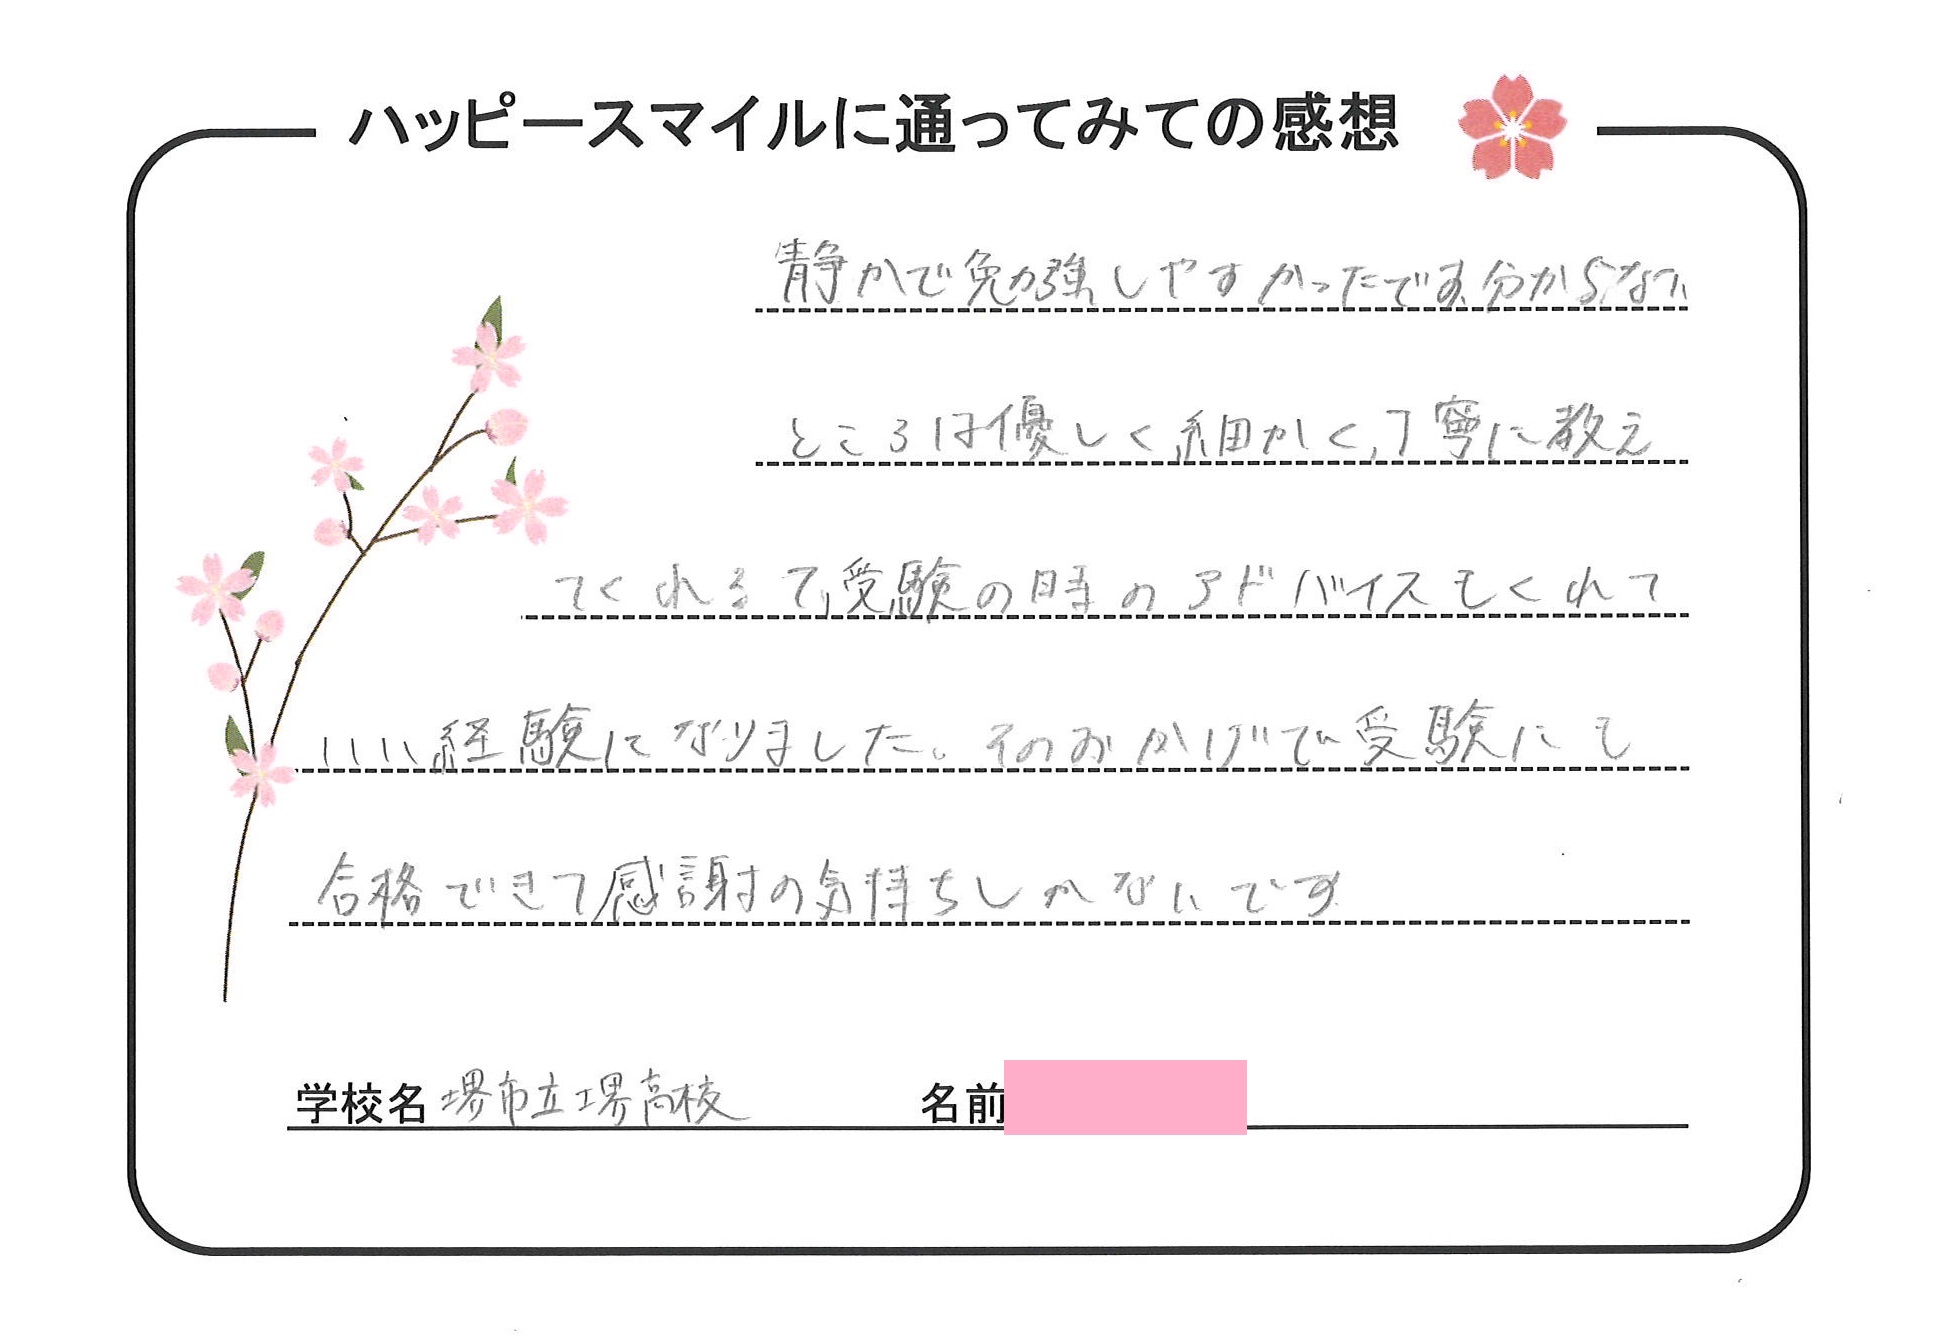 ハッピースマイルに通ってみての感想
静かで勉強しやすかったです。分からない
ところは優しく細かく,丁寧に教え
てくれるで,受験の時のアドバイスもくれて
いい経験になりました。そのおかげで受験にも
合格できて感謝の気持ちしかないです
学校名 堺市立堺高校 名前